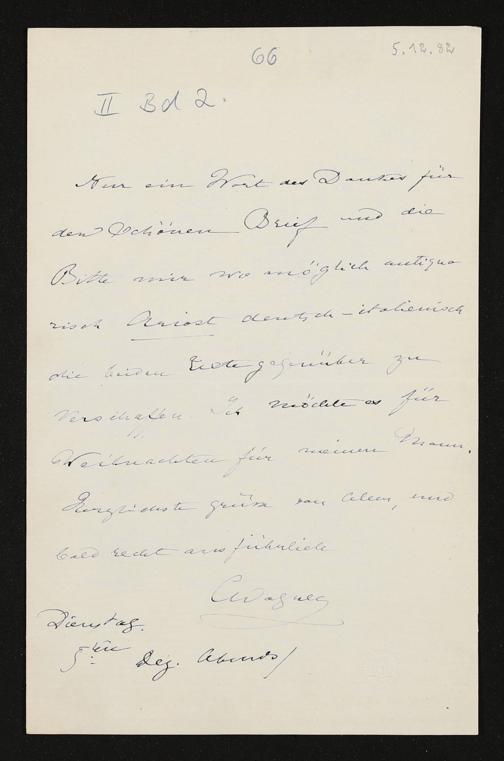 66
5.12.82
II Bd 2.
Nur ein Wort des Dankes für
den schönen Brief und die
Bitte mir wo möglich antiqua
risch Ariost deutsch-italienisch
die beiden Texte gegenüber zu
verschaffen. Ich möchte es für
Weihnachten für meinen Mann.
Herzlichste grüsse von Allem, und
bald recht ausführlich
CWagner
Dienstag.
5ten Dez. Abends/